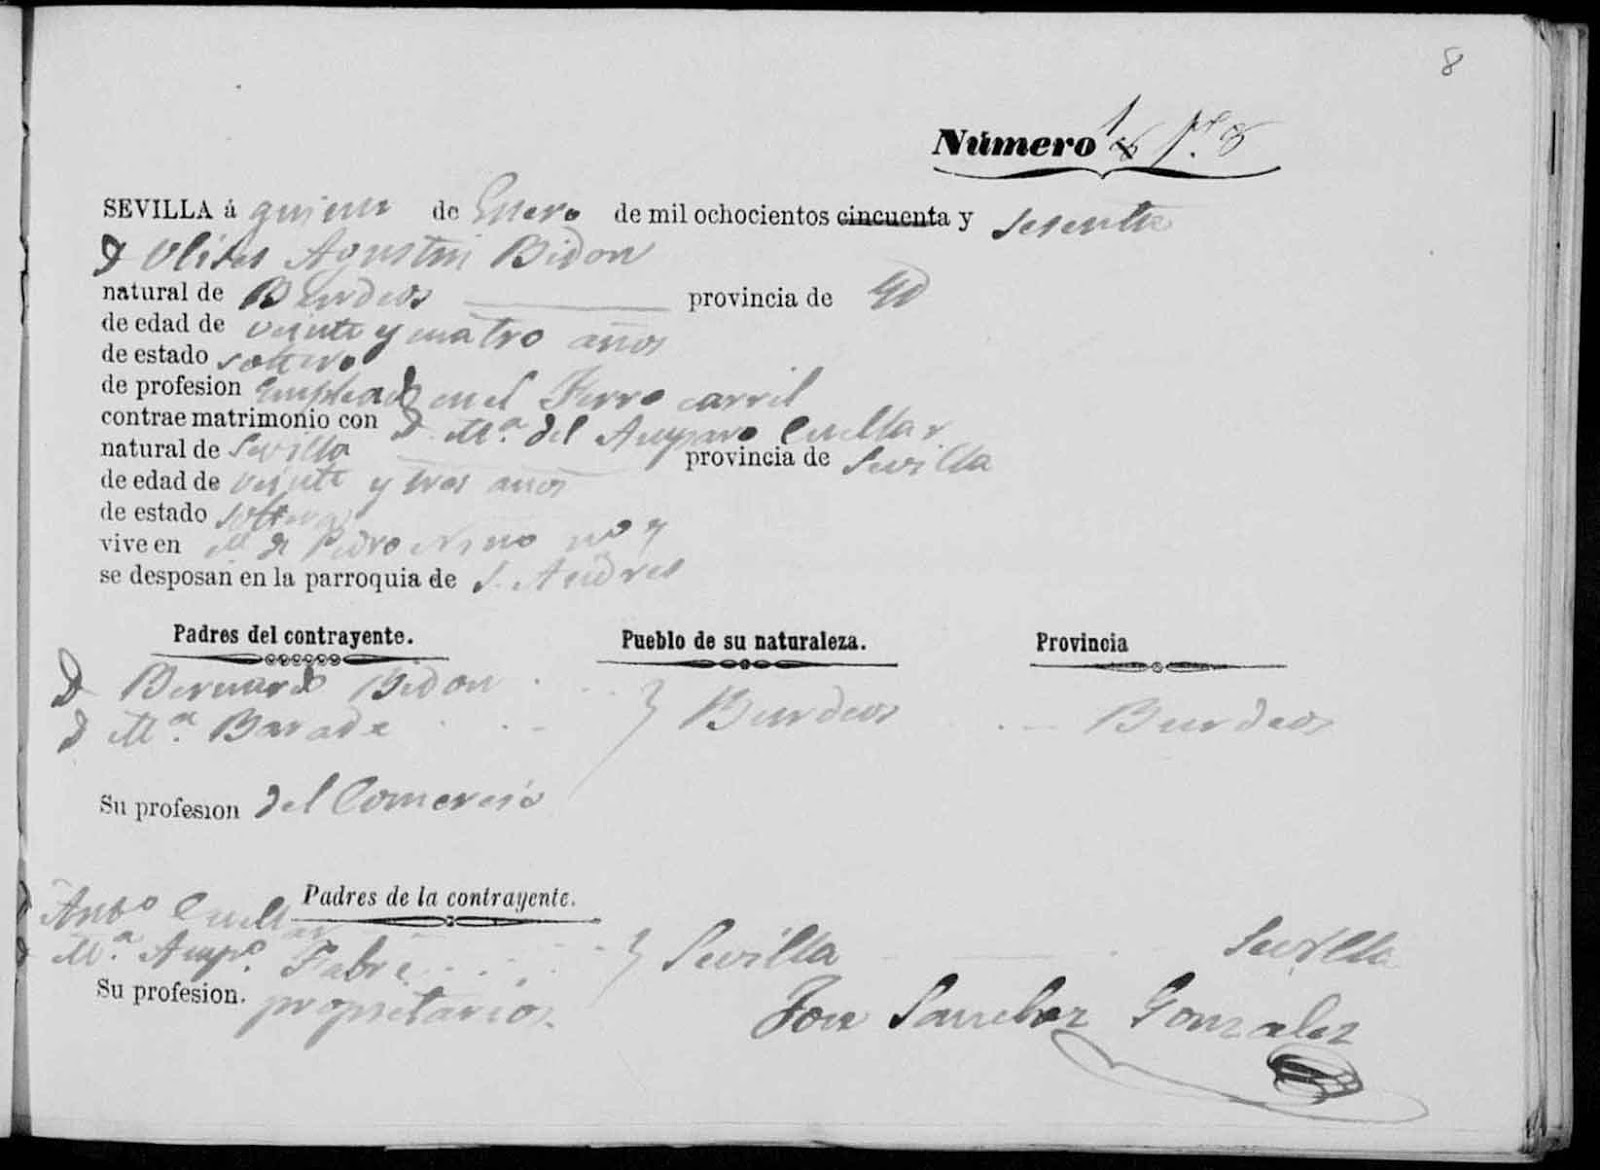 8
Número 1
SEVILLA á quince de Enero de mil ochocientos cincuenta y sesenta
D Ulises Agustin Bidon
natural de Burdeos provincia de Yd
de edad de veinte y cuatro años
de estado soltero
de profesion empleado en el Ferro carril
contrae matrimonio con D. Mª. del Amparo Cuellar
natural de Sevilla provincia de Sevilla
de edad de veinte y tres años
de estado soltera
vive en de Pedro Niño nº 7
se desposan en la parroquia de S. Andres
Padres del contrayente. Pueblo de su naturaleza. Provincia
D Bernardo Bidon
D Mª. Barade } Burdeos Burdeos
Su profesion del Comercio
Padres de la contrayente.
Antº Cuellar
Mª Ampº. Fabre } Sevilla Sevilla
Su profesion. propietarios.
Jose Sanchez Gonzalez